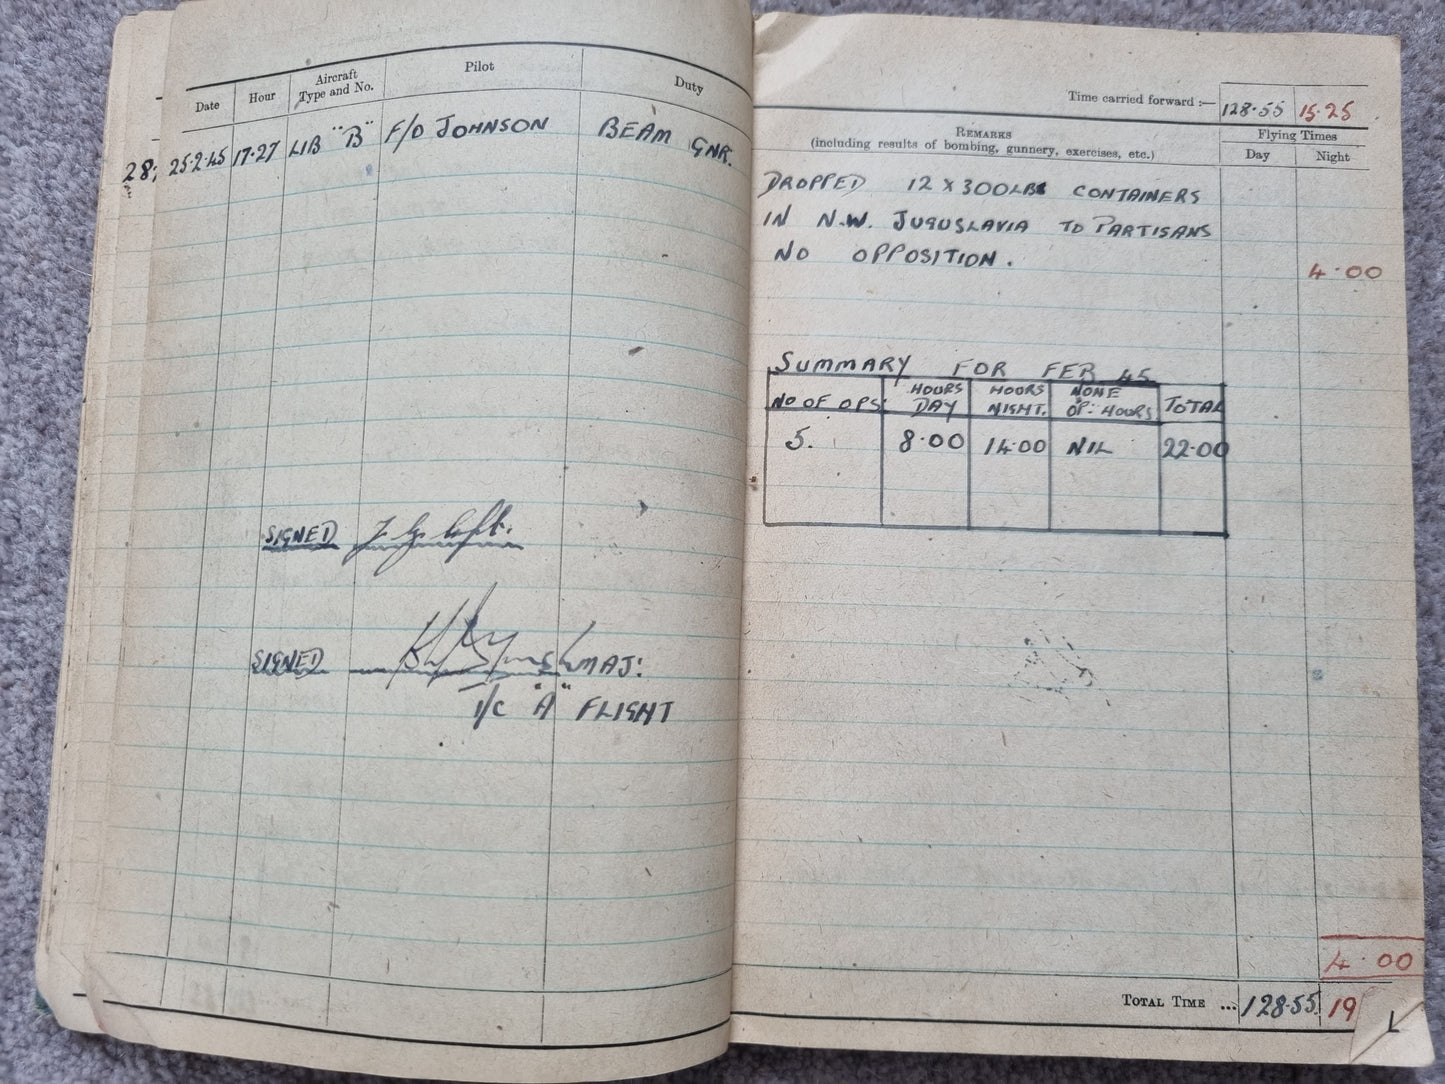 Date Hour Aircraft Type and No. Pilot Duty
28; 25·2·45 17·27 LIB "B" F/O JOHNSON BEAM GNR.
SIGNED
SIGNED MAJ:
I/C "A" FLIGHT
Time carried forward :— 128·55 15·25
REMARKS
(including results of bombing, gunnery, exercises, etc.)
Flying Times
Day Night
DROPPED 12 X 300LBS CONTAINERS
IN N.W. JUGUSLAVIA TO PARTISANS
NO OPPOSITION.
4·00
SUMMARY FOR FEB 45
NO OF OPS: HOURS DAY HOURS NIGHT. NONE OP: HOURS TOTAL
5. 8·00 14·00 NIL 22·00
4·00
TOTAL TIME ... 128·55 19